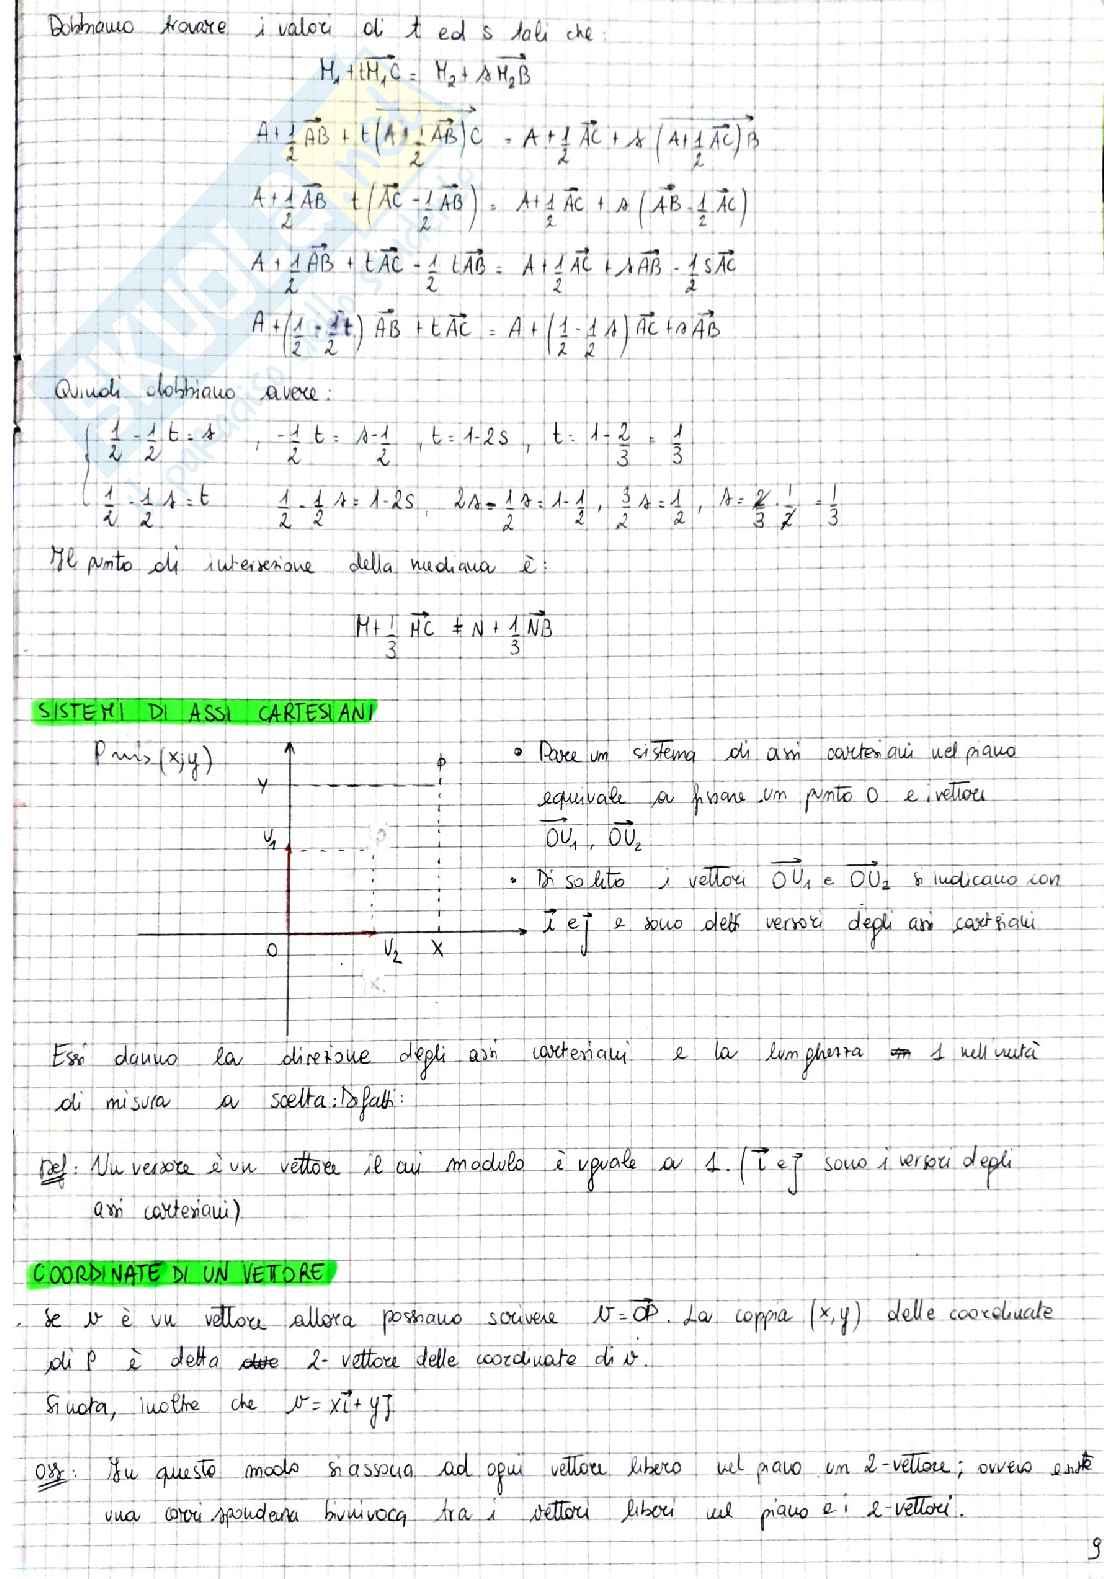 Dobbiamo trovare i valori di t ed s tali che:
M₁ + tM₁C = M₂ + sM₂B
A + 1/2 AB + t(A + 1/2 AB)C = A + 1/2 AC + s(A + 1/2 AC)B
A + 1/2 AB t(AC - 1/2 AB) = A + 1/2 AC + s(AB - 1/2 AC)
A + 1/2 AB + tAC - 1/2 tAB = A + 1/2 AC + sAB - 1/2 sAC
A + (1/2 - 1/2 t) AB + tAC = A + (1/2 - 1/2 s) AC + sAB
Quindi dobbiamo avere:
{ 1/2 - 1/2 t = s , -1/2 t = s - 1/2 , t = 1 - 2s , t = 1 - 2/3 = 1/3
1/2 - 1/2 s = t 1/2 - 1/2 s = 1 - 2s , 2s - 1/2 s = 1 - 1/2 , 3/2 s = 1/2 , s = 2/3 · 1/2 = 1/3
Il punto di intersezione della mediana è:
M + 1/3 MC ≠ N + 1/3 NB
SISTEMI DI ASSI CARTESIANI
P ~> (x;y)
P
y
U₁
O
U₂
x
• Dare un sistema di assi cartesiani nel piano
equivale a fissare un punto O e i vettori
OU₁, OU₂
• Di solito i vettori OU₁ e OU₂ si indicano con
i e j e sono detti versori degli assi cartsiani
Essi danno la direzione degli assi cartesiani e la lunghezza 1 nell'unità
di misura a scelta: Difatti:
Def: Un versore è un vettore il cui modulo è uguale a 1. (i e j sono i versori degli
assi cartesiani)
COORDINATE DI UN VETTORE
. Se v è un vettore allora possiamo scrivere v = OP. La coppia (x,y) delle coordinate
di P è detta 2-vettore delle coordinate di v.
Si nota, inoltre che v = xi + yj
Oss: In questo modo si associa ad ogni vettore libero nel piano un 2-vettore; ovvero esiste
una corrispondenza biunivoca tra i vettori liberi nel piano e i 2-vettori.
9
SKUOLA.net